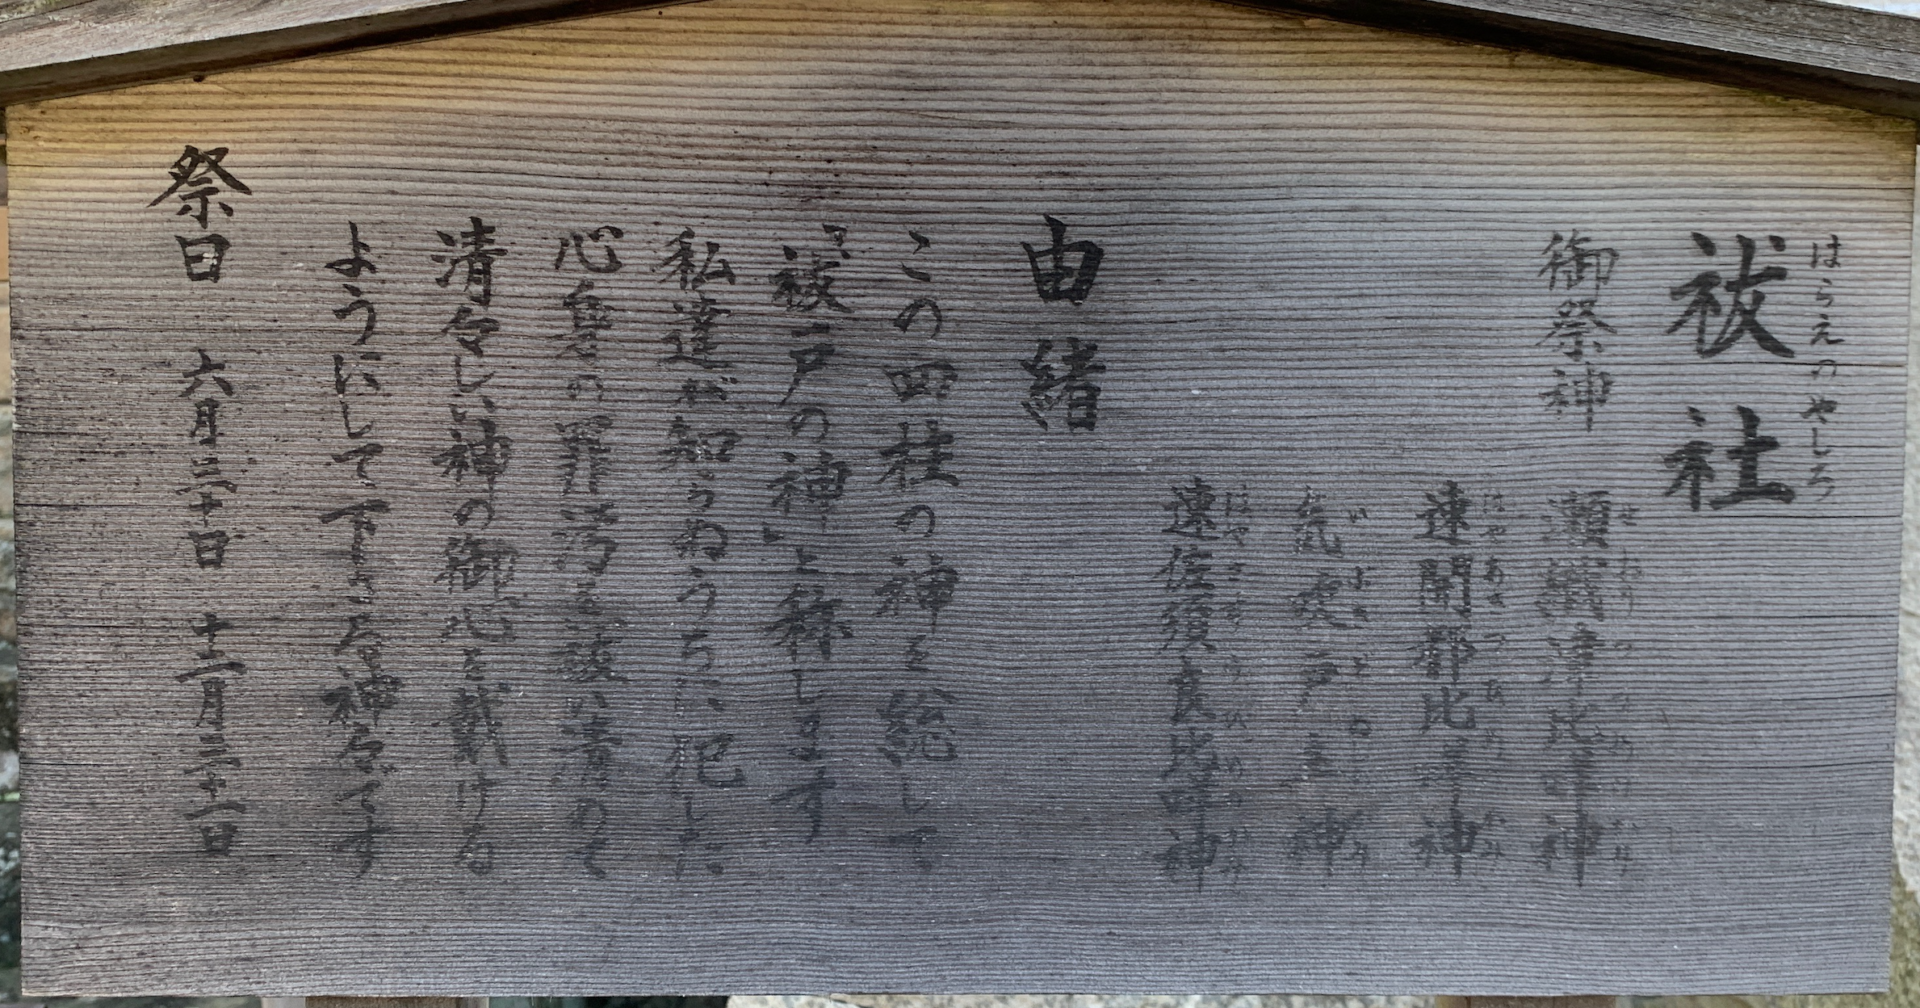 はらえのやしろ
祓社
御祭神
せおりつひめのかみ
瀬織津比咩神
はやあきつひめのかみ
速開都比咩神
いぶきどぬしのかみ
気吹戸主神
はやさすらひめのかみ
速佐須良比咩神
由緒
この四柱の神を総して
「祓戸の神」と称します
私達が知らぬうちに犯した
心身の罪汚を祓い清めて
清々しい神の御心を戴ける
ようにして下さる神々です
祭日 六月三十日 十二月三十一日